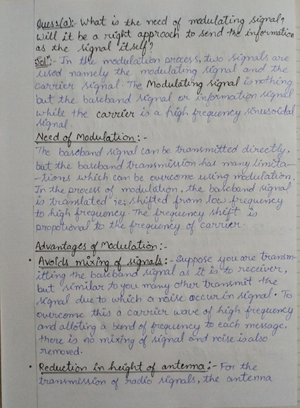 Ques:(a):- What is the need of modulating signal?
Will it be a right approach to send the information
as the signal itself?
Sol:- In the modulation process, two signals are
used namely the modulating signal and the
carrier signal. The Modulating signal is nothing
but the baseband signal or information signal
while the carrier is a high frequency sinusoidal
signal
Need of Modulation:-
The baseband signal can be transmitted directly,
but the baseband transmission has many limita-
-tions which can be overcome using modulation.
In the process of modulation, the baseband signal
is translated i.e. shifted from low frequency
to high frequency. The frequency shift is
propotional to the frequency of carrier.
Advantages of Modulation:-
• Avoids mixing of signals:- Suppose you are transm-
itting the baseband signal as it is to receiver,
but similar to you many other transmit the
signal due to which a noise occur in signal. To
overcome this a carrier wave of high frequency
and alloting a band of frequency to each message,
there is no mixing of signal and noise is also
removed.
• Reduction in height of antenna:- For the
transmission of radio signals, the antenna